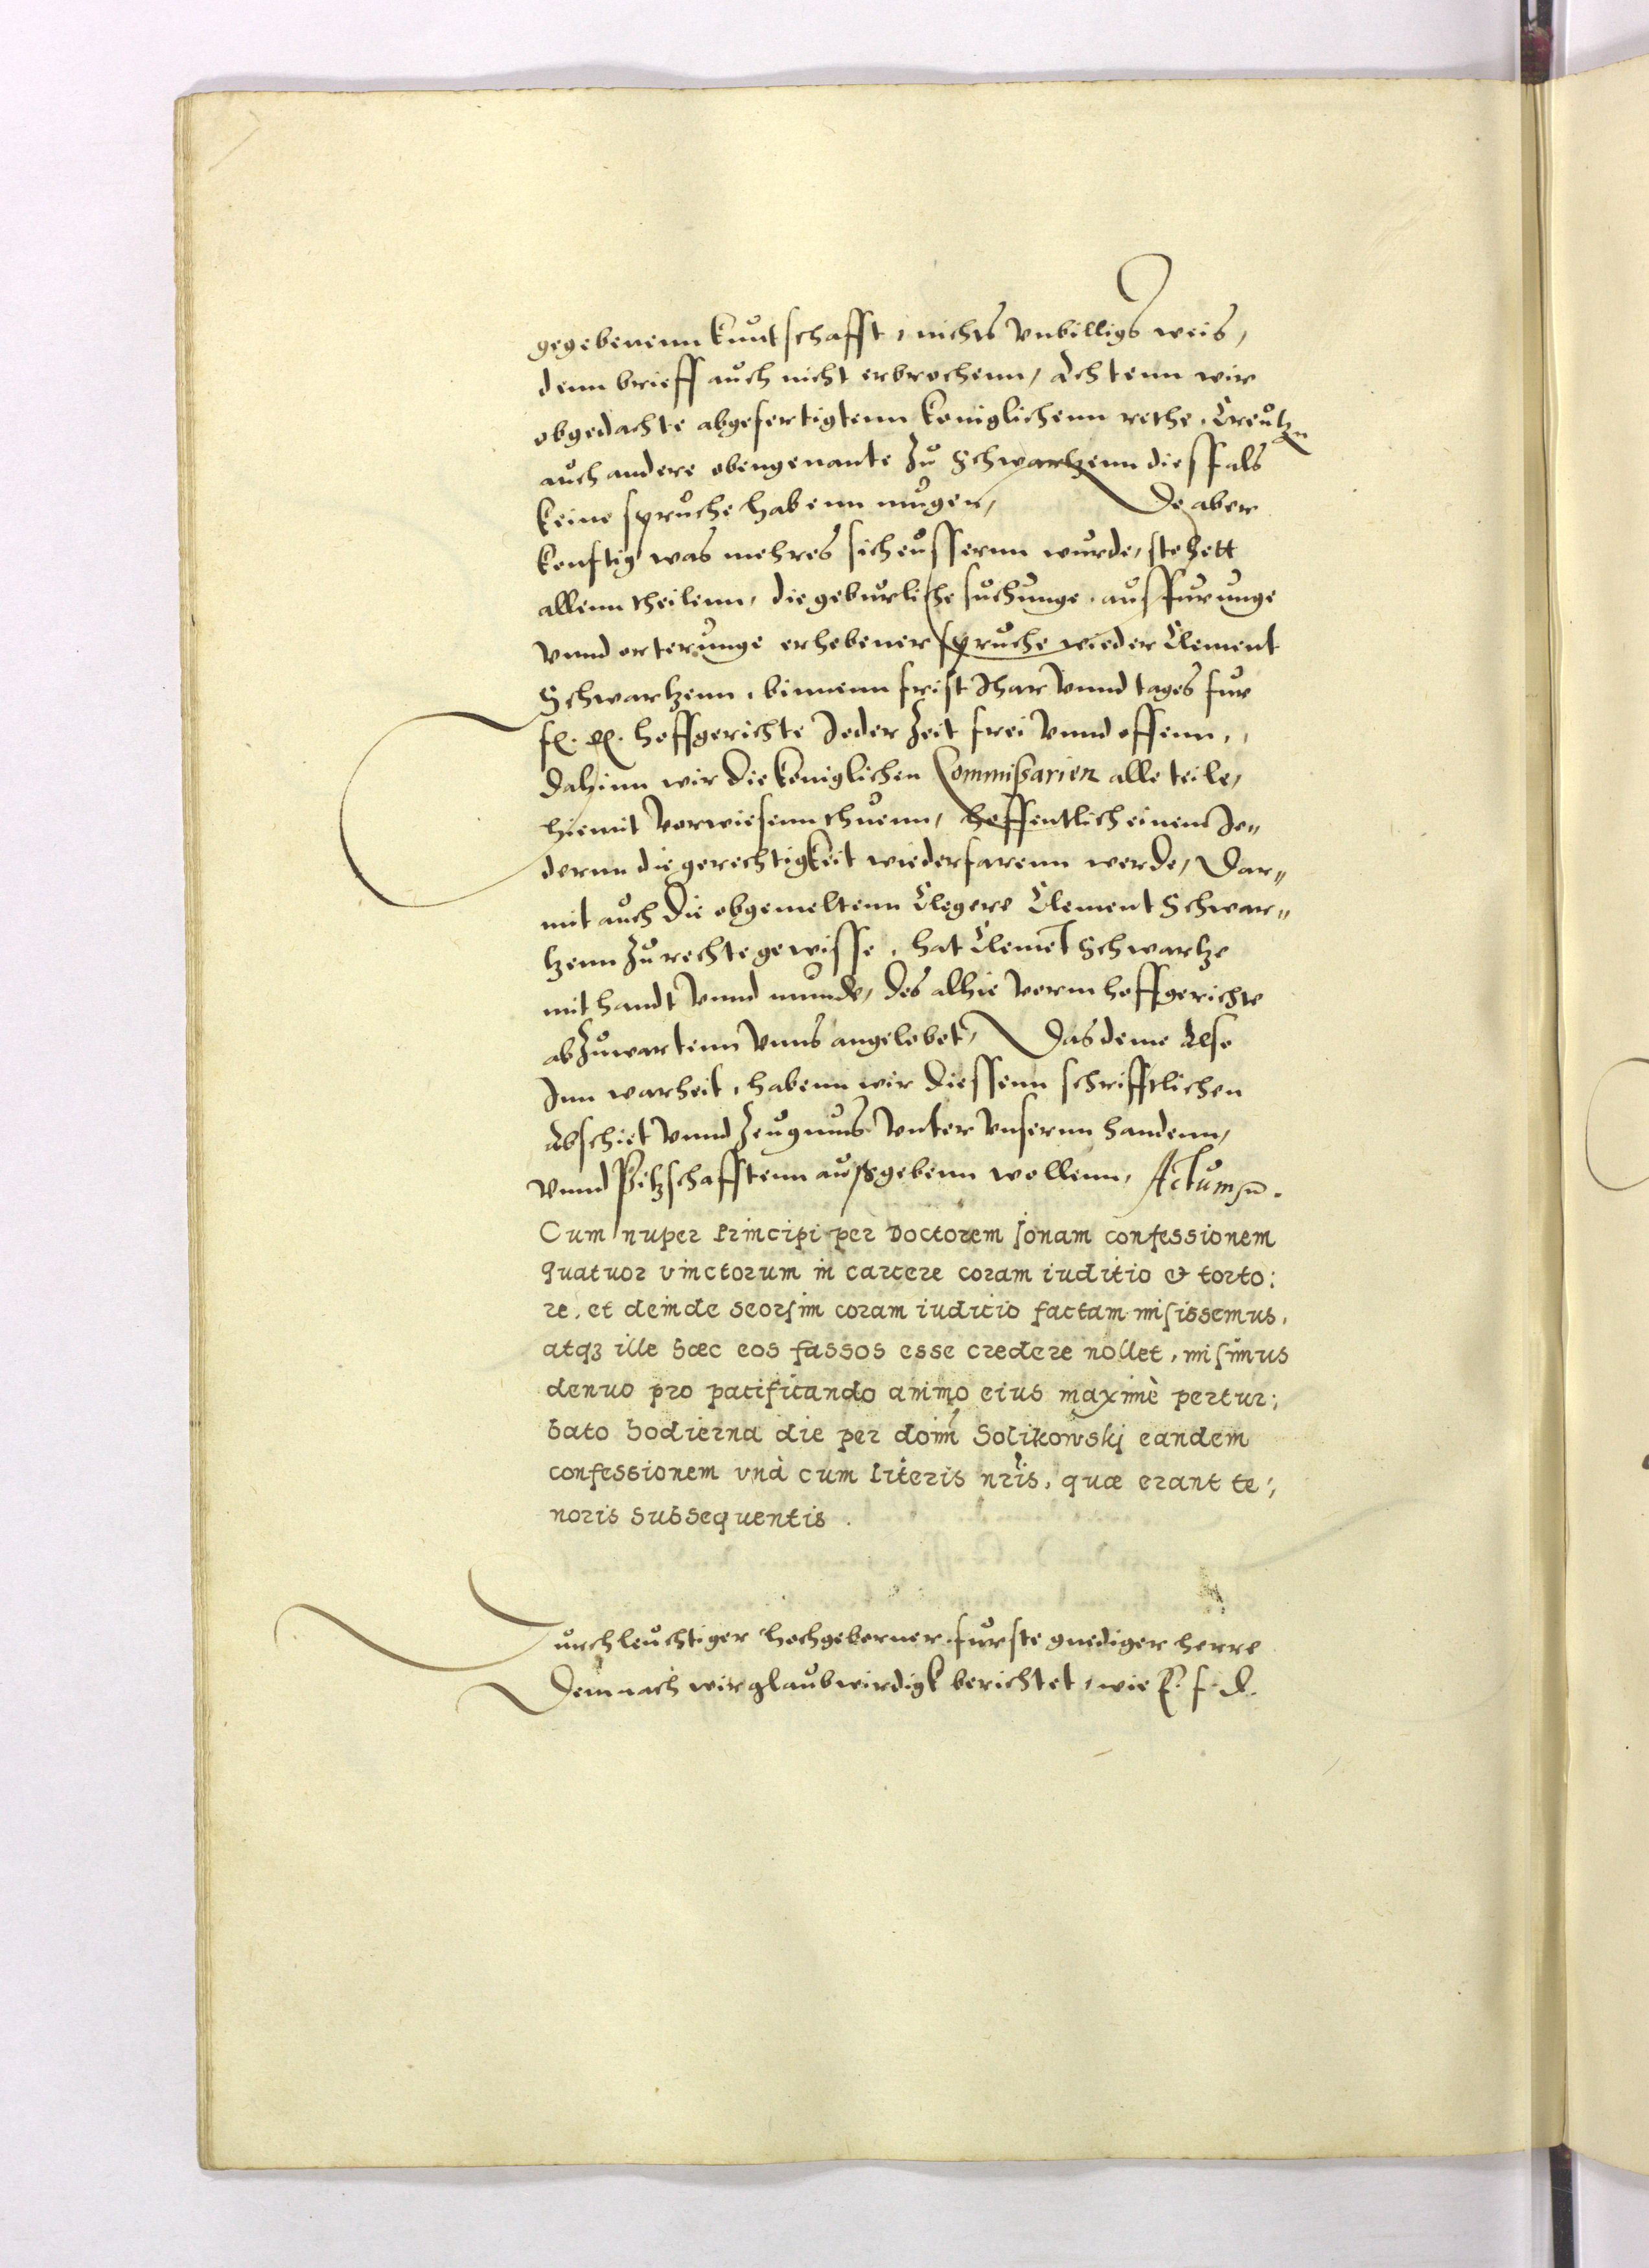 gegebenenn kuntschafft, nichts vnbilligs weis,
denn brieff auch nicht erbrochenn, Achtenn wir
obgedachte abgefertigtenn koniglichenn rethe, Creutzn
auch andere obengenante zu Schwartzenn diesfals
keine spruche habenn mugen, Do aber
konftig was mehres sich eussernn wurde, stehett
allenn theilenn, die geburliche suchunge, ausfurunge
vnnd orterunge erhobener spruche wieder Clement
Schwartzenn, binnenn frist Ihar vnnd tages fur
hoffgerichte Jeder Zeit frei vnnd offenn,
dahinn wir die koniglichen Commißarien alle teile,
hiemit vorwiesenn thuenn, hoffentlich einem Je„
dernn die gerechtigkeit wiederfarenn werde, Dar„
mit auch die obgemeltenn Clegere Clement Schwar„
tzenn zu rechte gewisse, hat Clemet Schwartze
mit handt vnnd munde, des alhie vorm hoffgerichte
abzuwartenn vnns angelobet, Das deme Also
Inn warheit, habenn wir diessenn schrifftlichen
Abschiet vnnd Zeugnus vnter vnsernn handenn,
vnnd Pitzschafftenn außgebenn wollenn, Actum
Cum nuper Principi per Doctorem Jonam confessionem
quatuor vinctorum in carcere coram iuditio & torto:
re, et deinde seorsim coram iudicio factam misissemus,
atqꝫ ille hæc eos fassos esse credere nollet, misimus
denuo pro pacificando animo eius maximè pertur:
bato hodierna die per doim̃ Solikowskj eandem
confessionem vnà cum literis nr̃is, quæ erant te:
noris subsequentis.
Durchleuchtiger hochgeborner furste gnediger herre
Demnach wir glaubwirdigk berichtet, wie E. f. d.